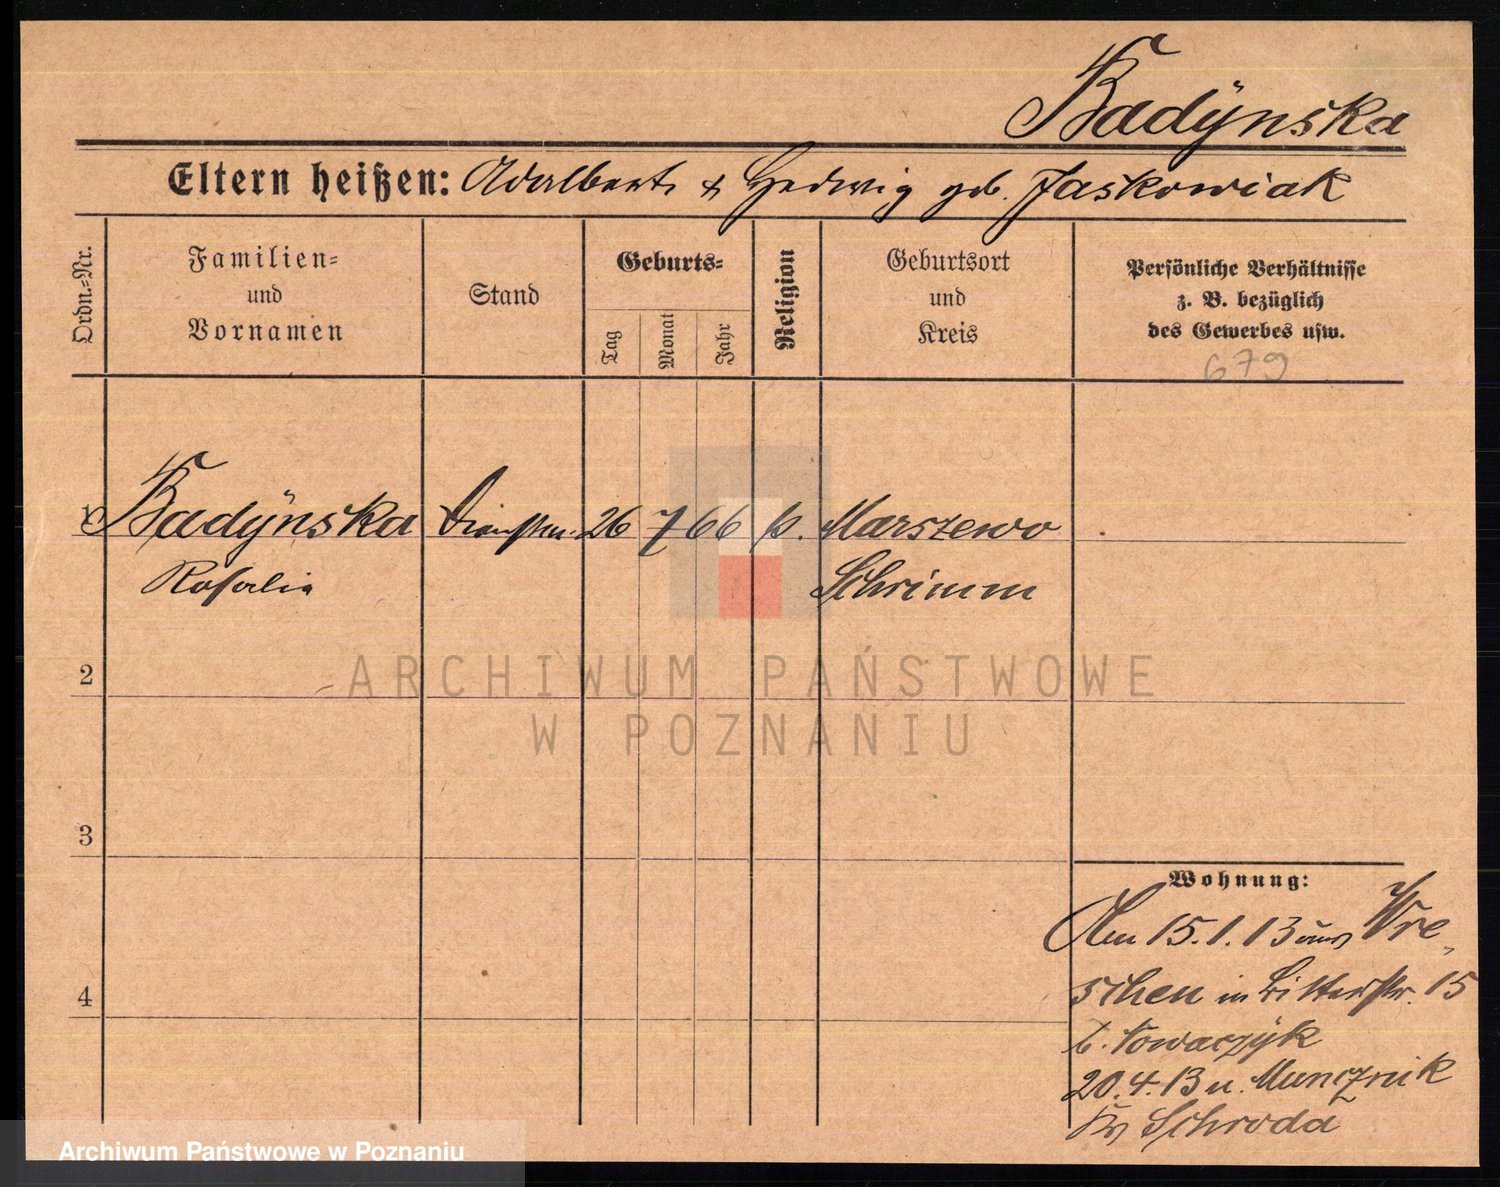 Badÿnska
Eltern heißen: Adalbert & Hedwig geb. Jaskowiak
Ordn.-Nr.
Familien-
und
Vornamen
Stand
Geburts-
Tag
Monat
Jahr
Religion
Geburtsort
und
Kreis
Persönliche Verhältnisse
z. B. bezüglich
des Gewerbes usw.
679
1 Badÿnska 26 7 66 k. Marszewo
Rosalia Schrimm
2
ARCHIWUM PAŃSTWOWE
W POZNANIU
3
Wohnung:
Am 15.1.13 aus Wre-
schen in Ritterstr. 15
b. Nowaczÿk
20.4.13 n. Muncznik
Kr. Schroda
4
Archiwum Państwowe w Poznaniu